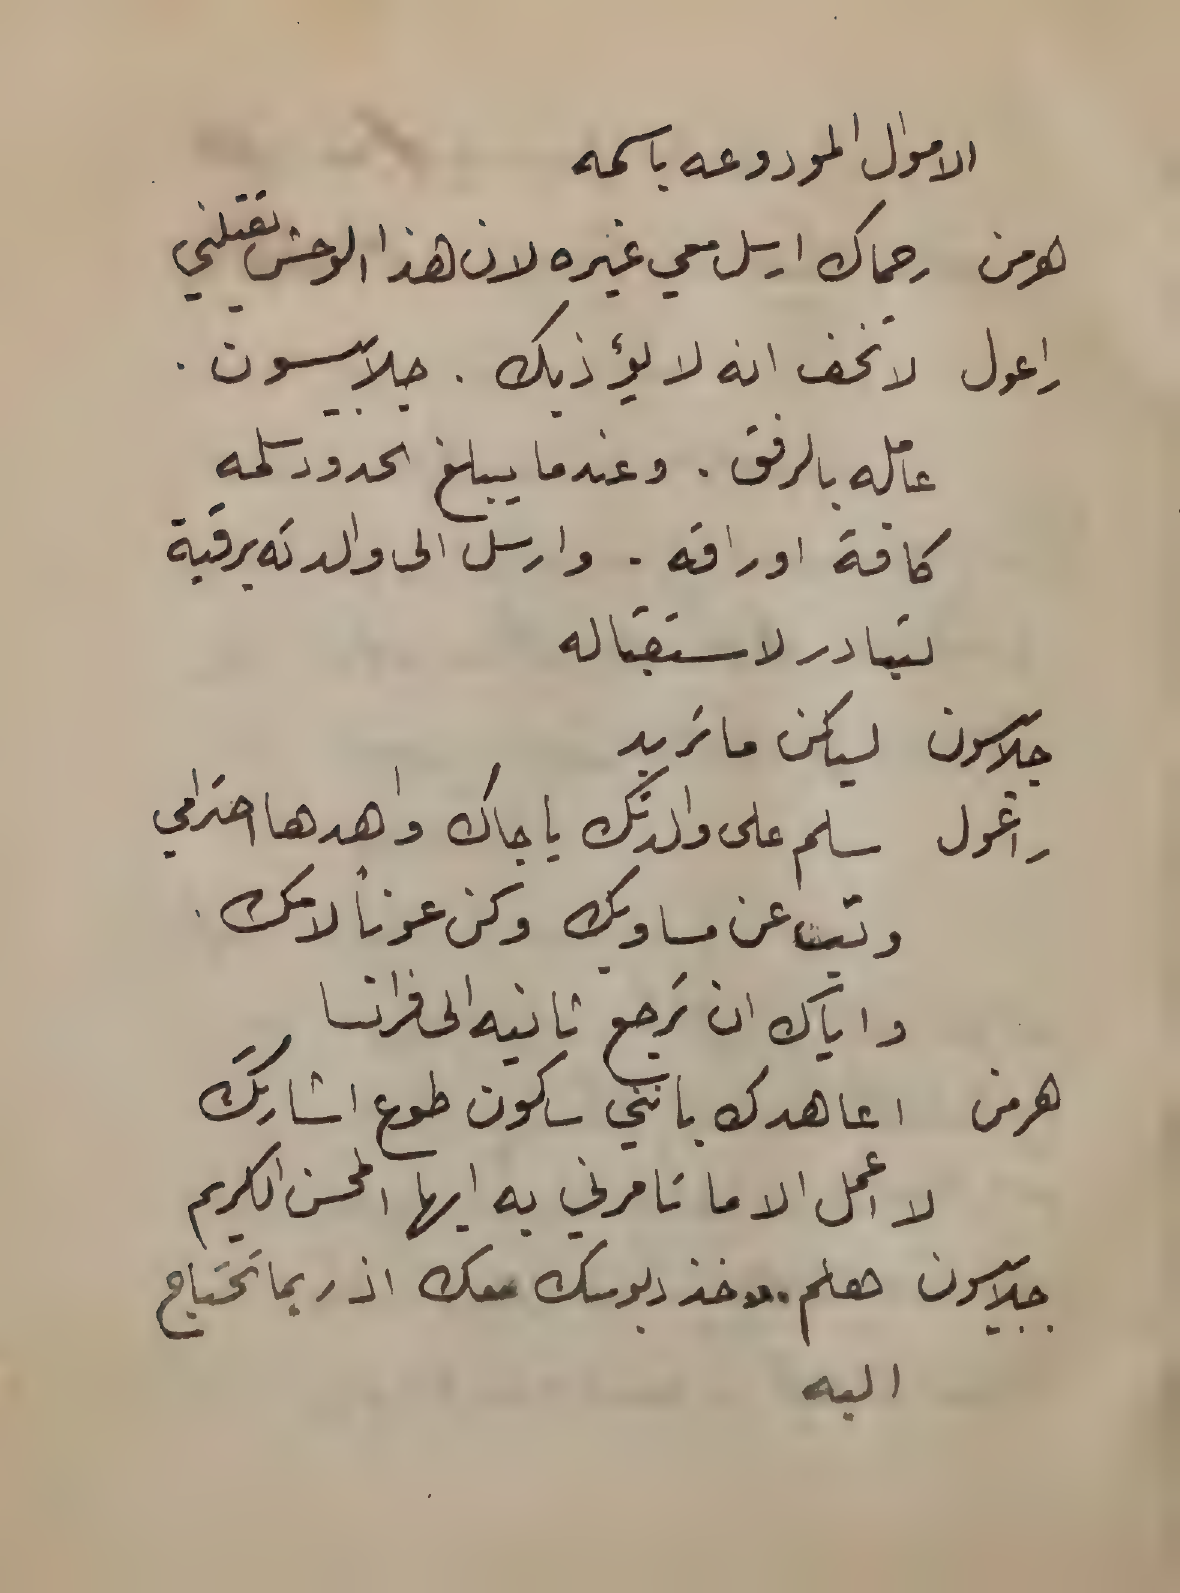 الاموال المودوعه باسمه
هرمن رحماك ارسل معي غيره لان هذا الوحش يقتلني
راعول لا تخف انه لا يؤذيك . جلاسيون .
عامله بالرفق . وعندما يبلغ الحدود سلمه
كافة اوراقه . وارسل الى والدته برقية
لتبادر لاستقباله
جلاسون ليكن ما تريد
راغول سلم على والدتك يا جاك واهدها احترامي
وتب عن مساويك وكن عوناً لامك .
واياك ان ترجع ثانيه الى فرانسا
هرمن اعاهدك بانني ساكون طوع اشارتك
لا اعمل الا ما تامرني به ايها المحسن الكريم
جلاسيون هلم .. خذ دبوسك معك اذ ربما تحتاج
اليه